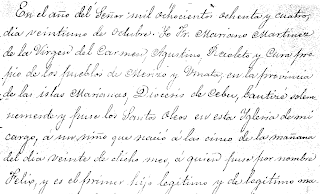 En el año del Señor mil ochocientos ochenta y cuatro,
dia veintiuno de Octubre. Yo Fr. Mariano Martinez
de la Virgen del Carmen, Agustino Recoleto y Cura pro
pio de los pueblos de Merizo y Umata, en la provincia
de las islas Marianas, Diócesis de Cebú, bauticé solem
nemente y puse los Santos Oleos en esta Iglesia de mi
cargo, a un niño que nació a las cinco de la mañana
del dia veinte de dicho mes, a quien puse por nombre
Felix, y es el primer hijo legitimo y de legitimo ma